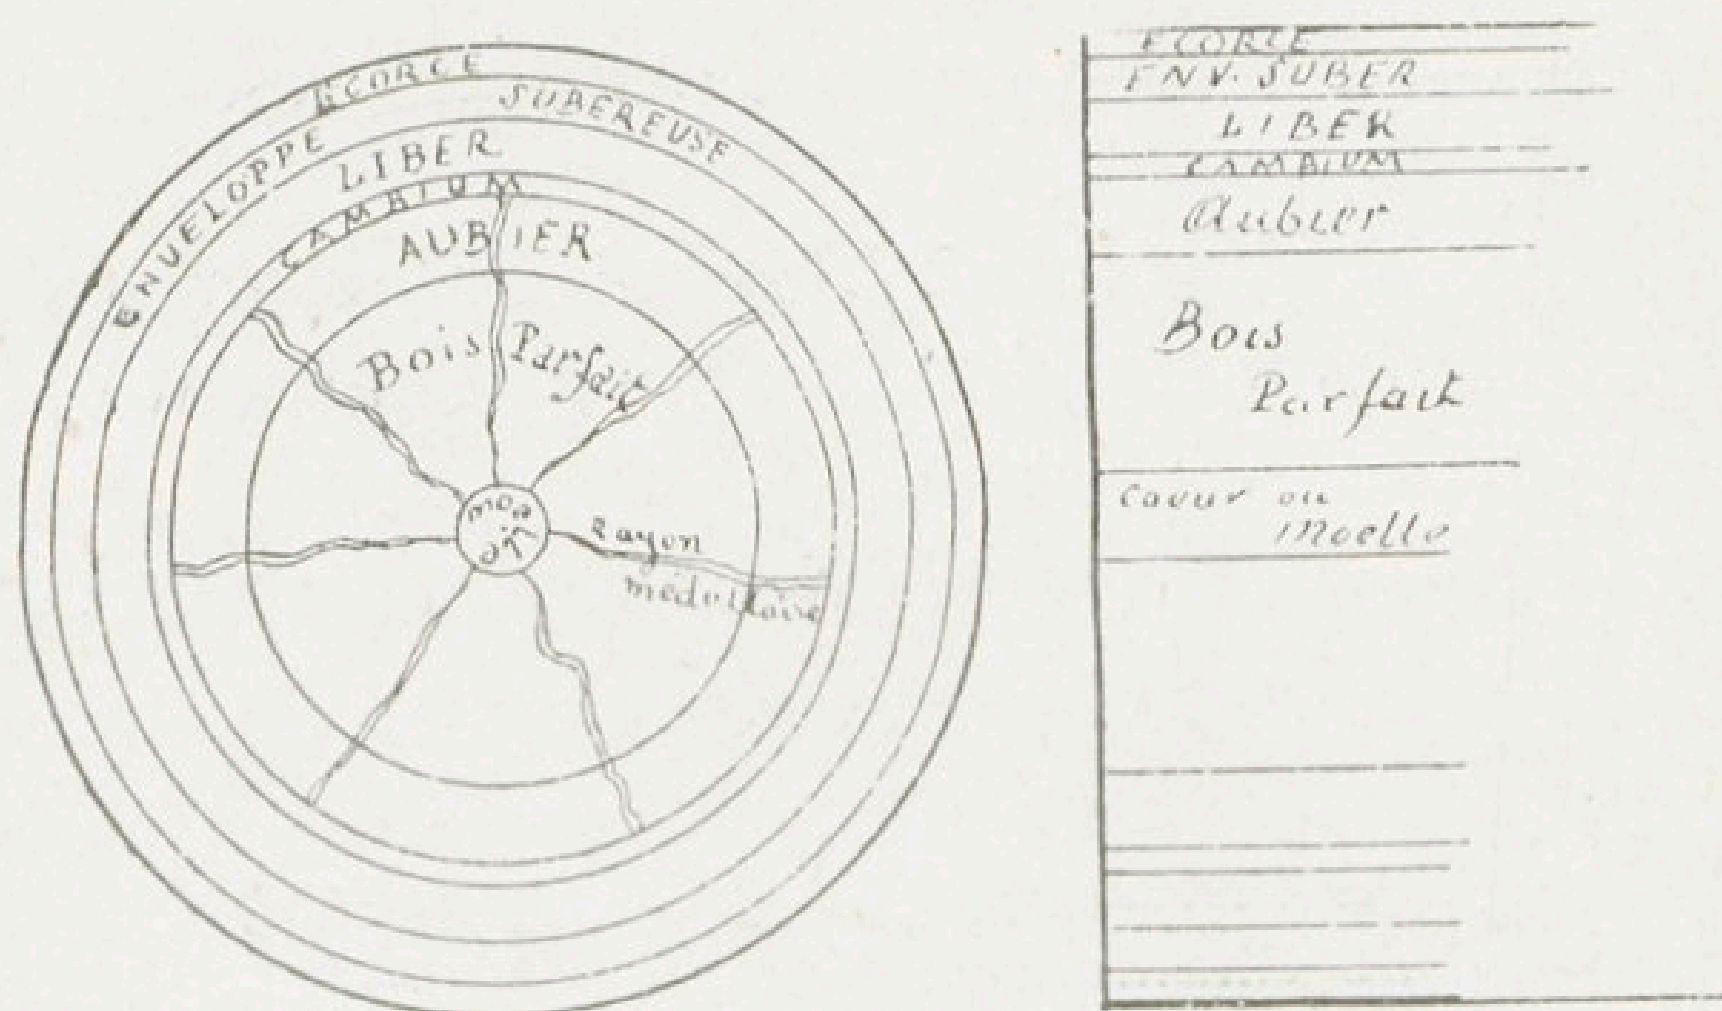 ÉCORCE
ENVELOPPE SUBEREUSE
LIBER
CAMBIUM
AUBIER
Bois Parfait
moelle
Rayon
médullaire
ECORCE
ENV. SUBER
LIBER
CAMBIUM
Aubier
Bois
Parfait
Coeur ou
Moelle